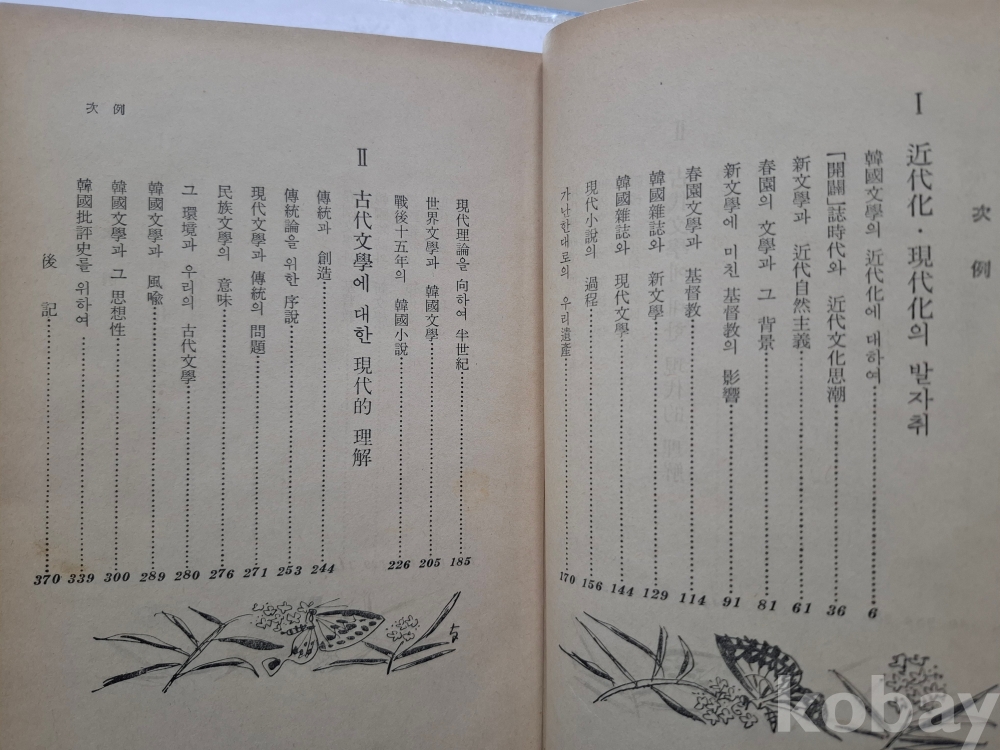 次例
Ⅰ 近代化·現代化의 발자취
韓國文學의 近代化에 대하여 6
「開闢」誌時代와 近代文化思潮 36
新文學과 近代自然主義 61
春園의 文學과 그 背景 81
新文學에 미친 基督敎의 影響 91
春園文學과 基督敎 114
韓國雜誌와 新文學 129
韓國雜誌와 現代文學 144
現代小說의 過程 156
가난한대로의 우리遺産 170
次例
現代理論을 向하여 半世紀 185
世界文學과 韓國文學 205
戰後十五年의 韓國小說 226
Ⅱ 古代文學에 대한 現代的 理解
傳統과 創造 244
傳統論을 위한 序說 253
現代文學과 傳統의 問題 271
民族文學의 意味 276
그 環境과 우리의 古代文學 280
韓國文學과 風喩 289
韓國文學과 그 思想性 300
韓國批評史를 위하여 339
後記 370
kobay